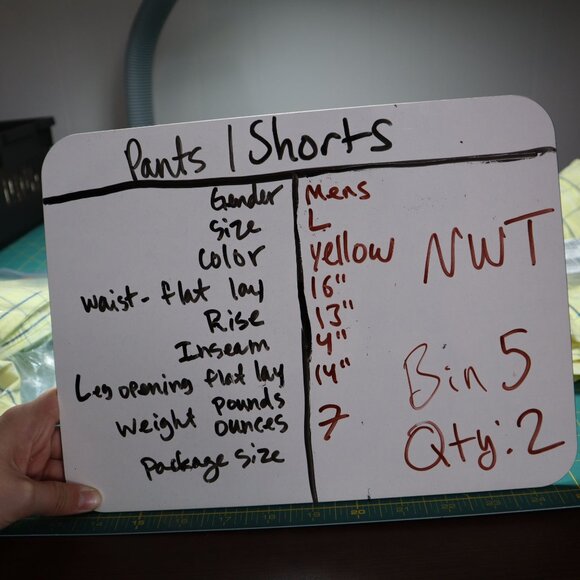 Pants | Shorts
Gender Mens
Size L
Color yellow
NWT
waist - flat lay 16"
Rise 13"
Inseam 4"
Leg opening flat lay 14"
Weight pounds
ounces 7
package size
Bin 5
Qty: 2
15 16 17 18 19 20